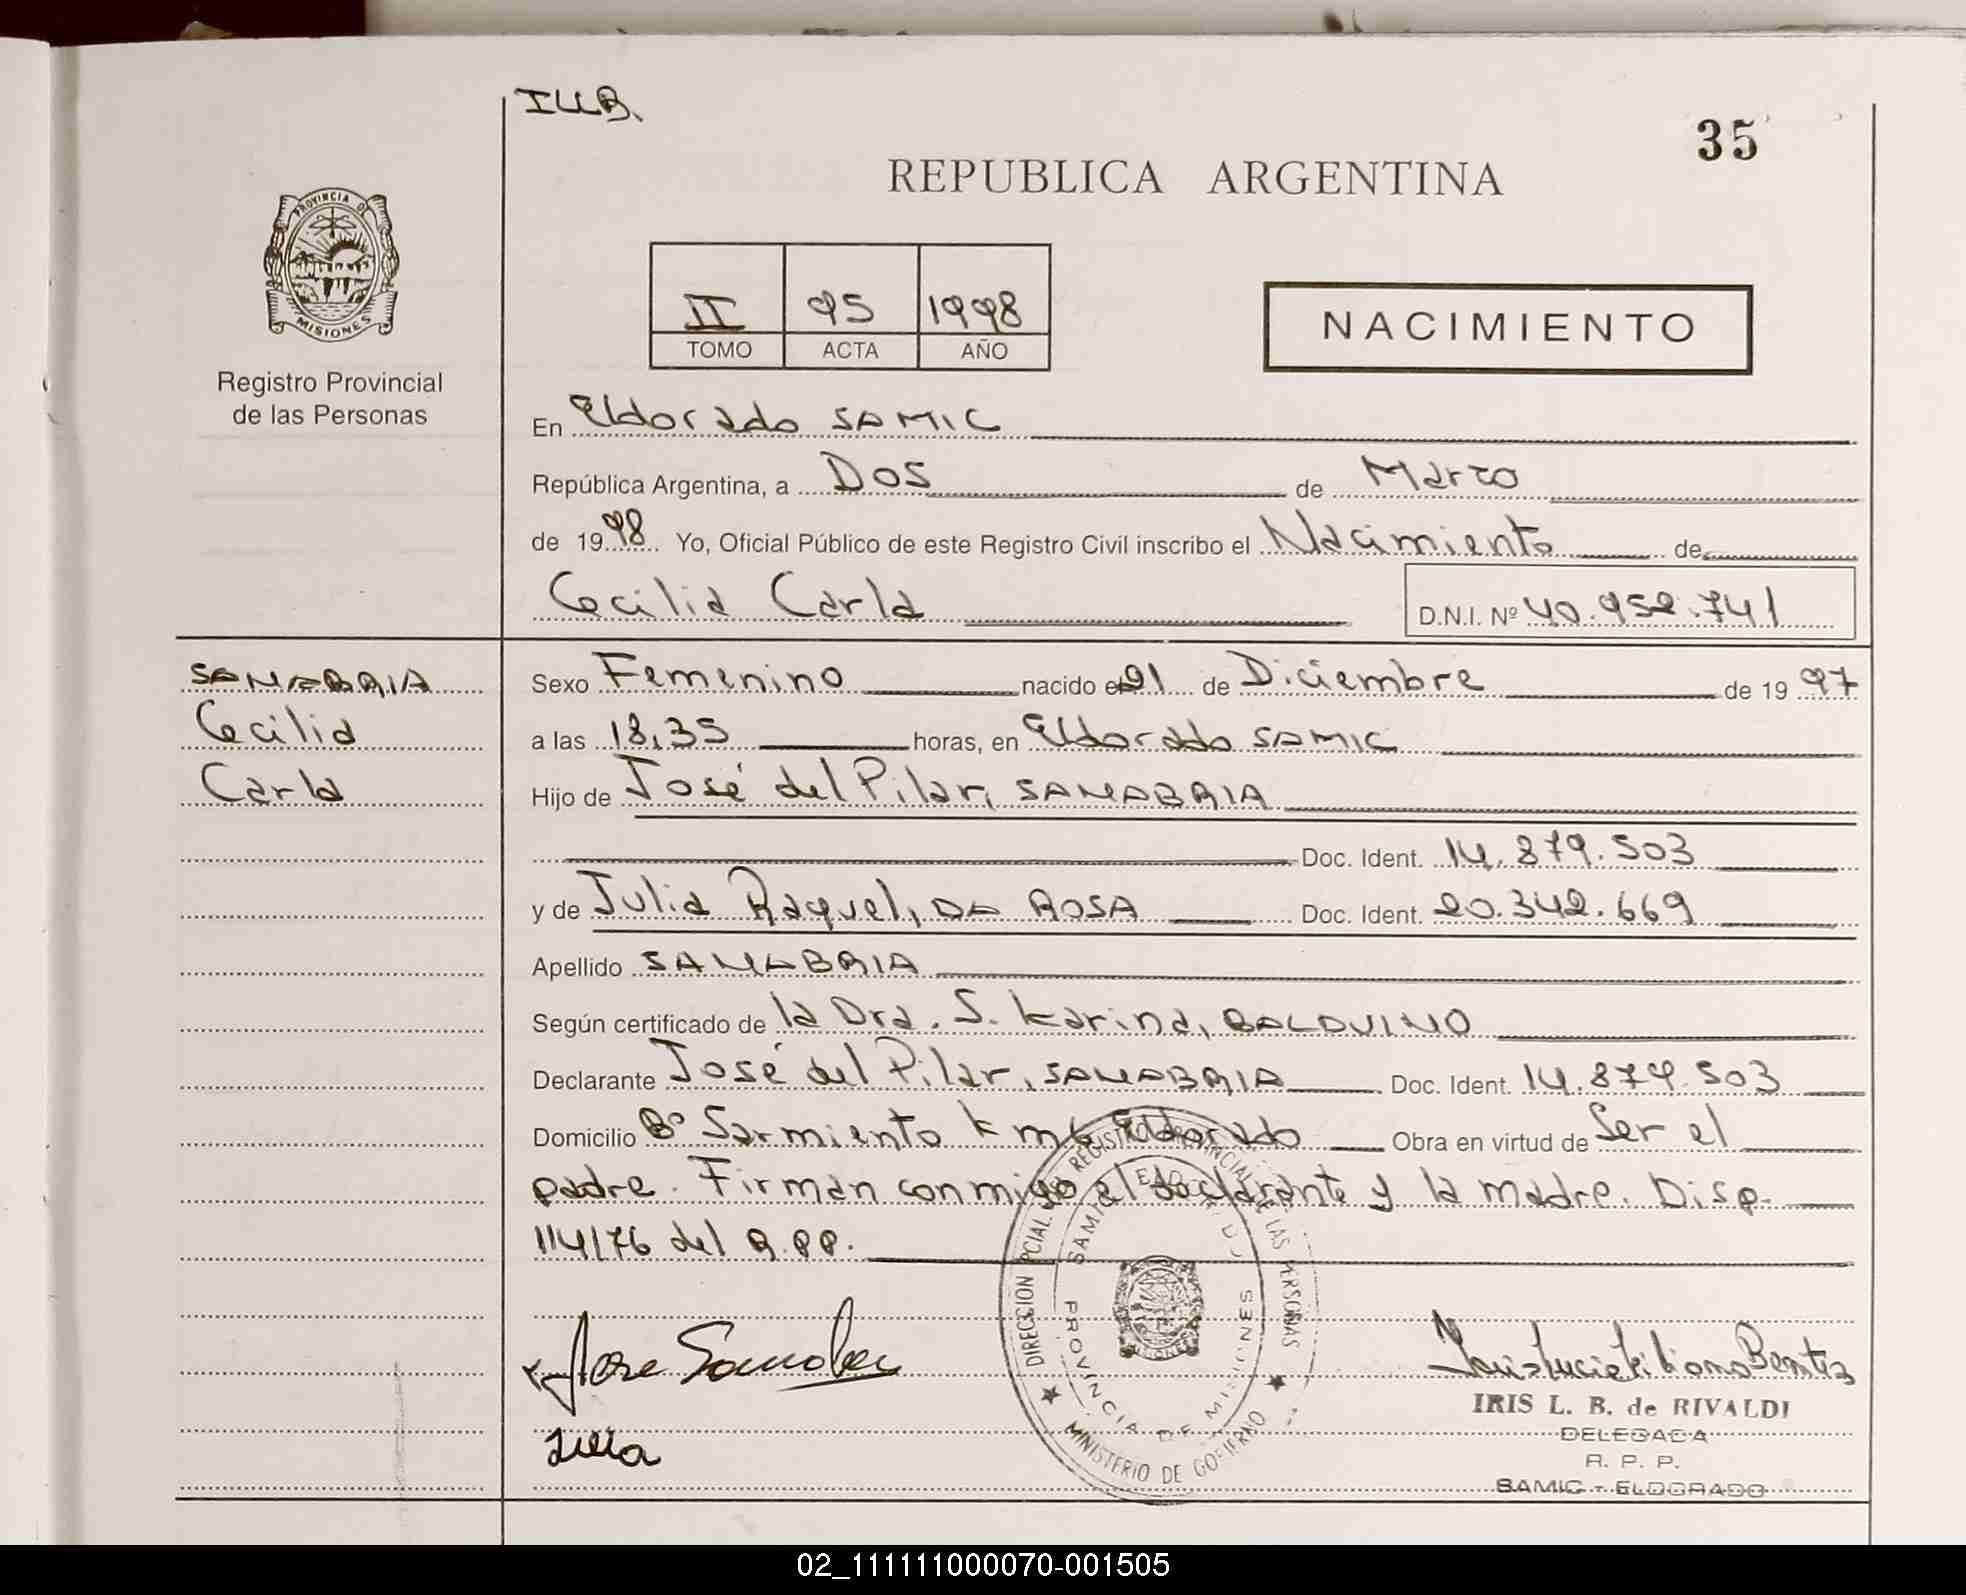 I.LL.B.
35
REPUBLICA ARGENTINA
PROVINCIA DE
MISIONES
Registro Provincial
de las Personas
II 95 1998
TOMO ACTA AÑO
NACIMIENTO
En Eldorado SAMIC
República Argentina, a Dos de Marzo
de 1998 Yo, Oficial Público de este Registro Civil inscribo el Nacimiento de
Cecilia Carla D.N.I. Nº 40.952.741
SANABRIA
Cecilia
Carla
Sexo Femenino nacido el 21 de Diciembre de 1997
a las 18,35 horas, en Eldorado SAMIC
Hijo de José del Pilar, SANABRIA
Doc. Ident. 14.879.503
y de Julia Raquel, DA ROSA Doc. Ident. 20.342.669
Apellido SANABRIA
Según certificado de la Dra. S. Karina, BALDUINO
Declarante José del Pilar, SANABRIA Doc. Ident. 14.879.503
Domicilio Bº Sarmiento Km 6 Eldorado Obra en virtud de Ser el
padre. Firman conmigo el declarante y la madre. Disp.
114/76 del R.PP.
DIRECCION PCIAL. REGISTRO PROVINCIAL DE LAS PERSONAS
MINISTERIO DE GOBIERNO
SAMIC ELDORADO
PROVINCIA DE MISIONES
Jose
Julia
Benitez
IRIS L. B. de RIVALDI
DELEGADA
R. P. P.
SAMIC - ELDORADO
02_111111000070-001505